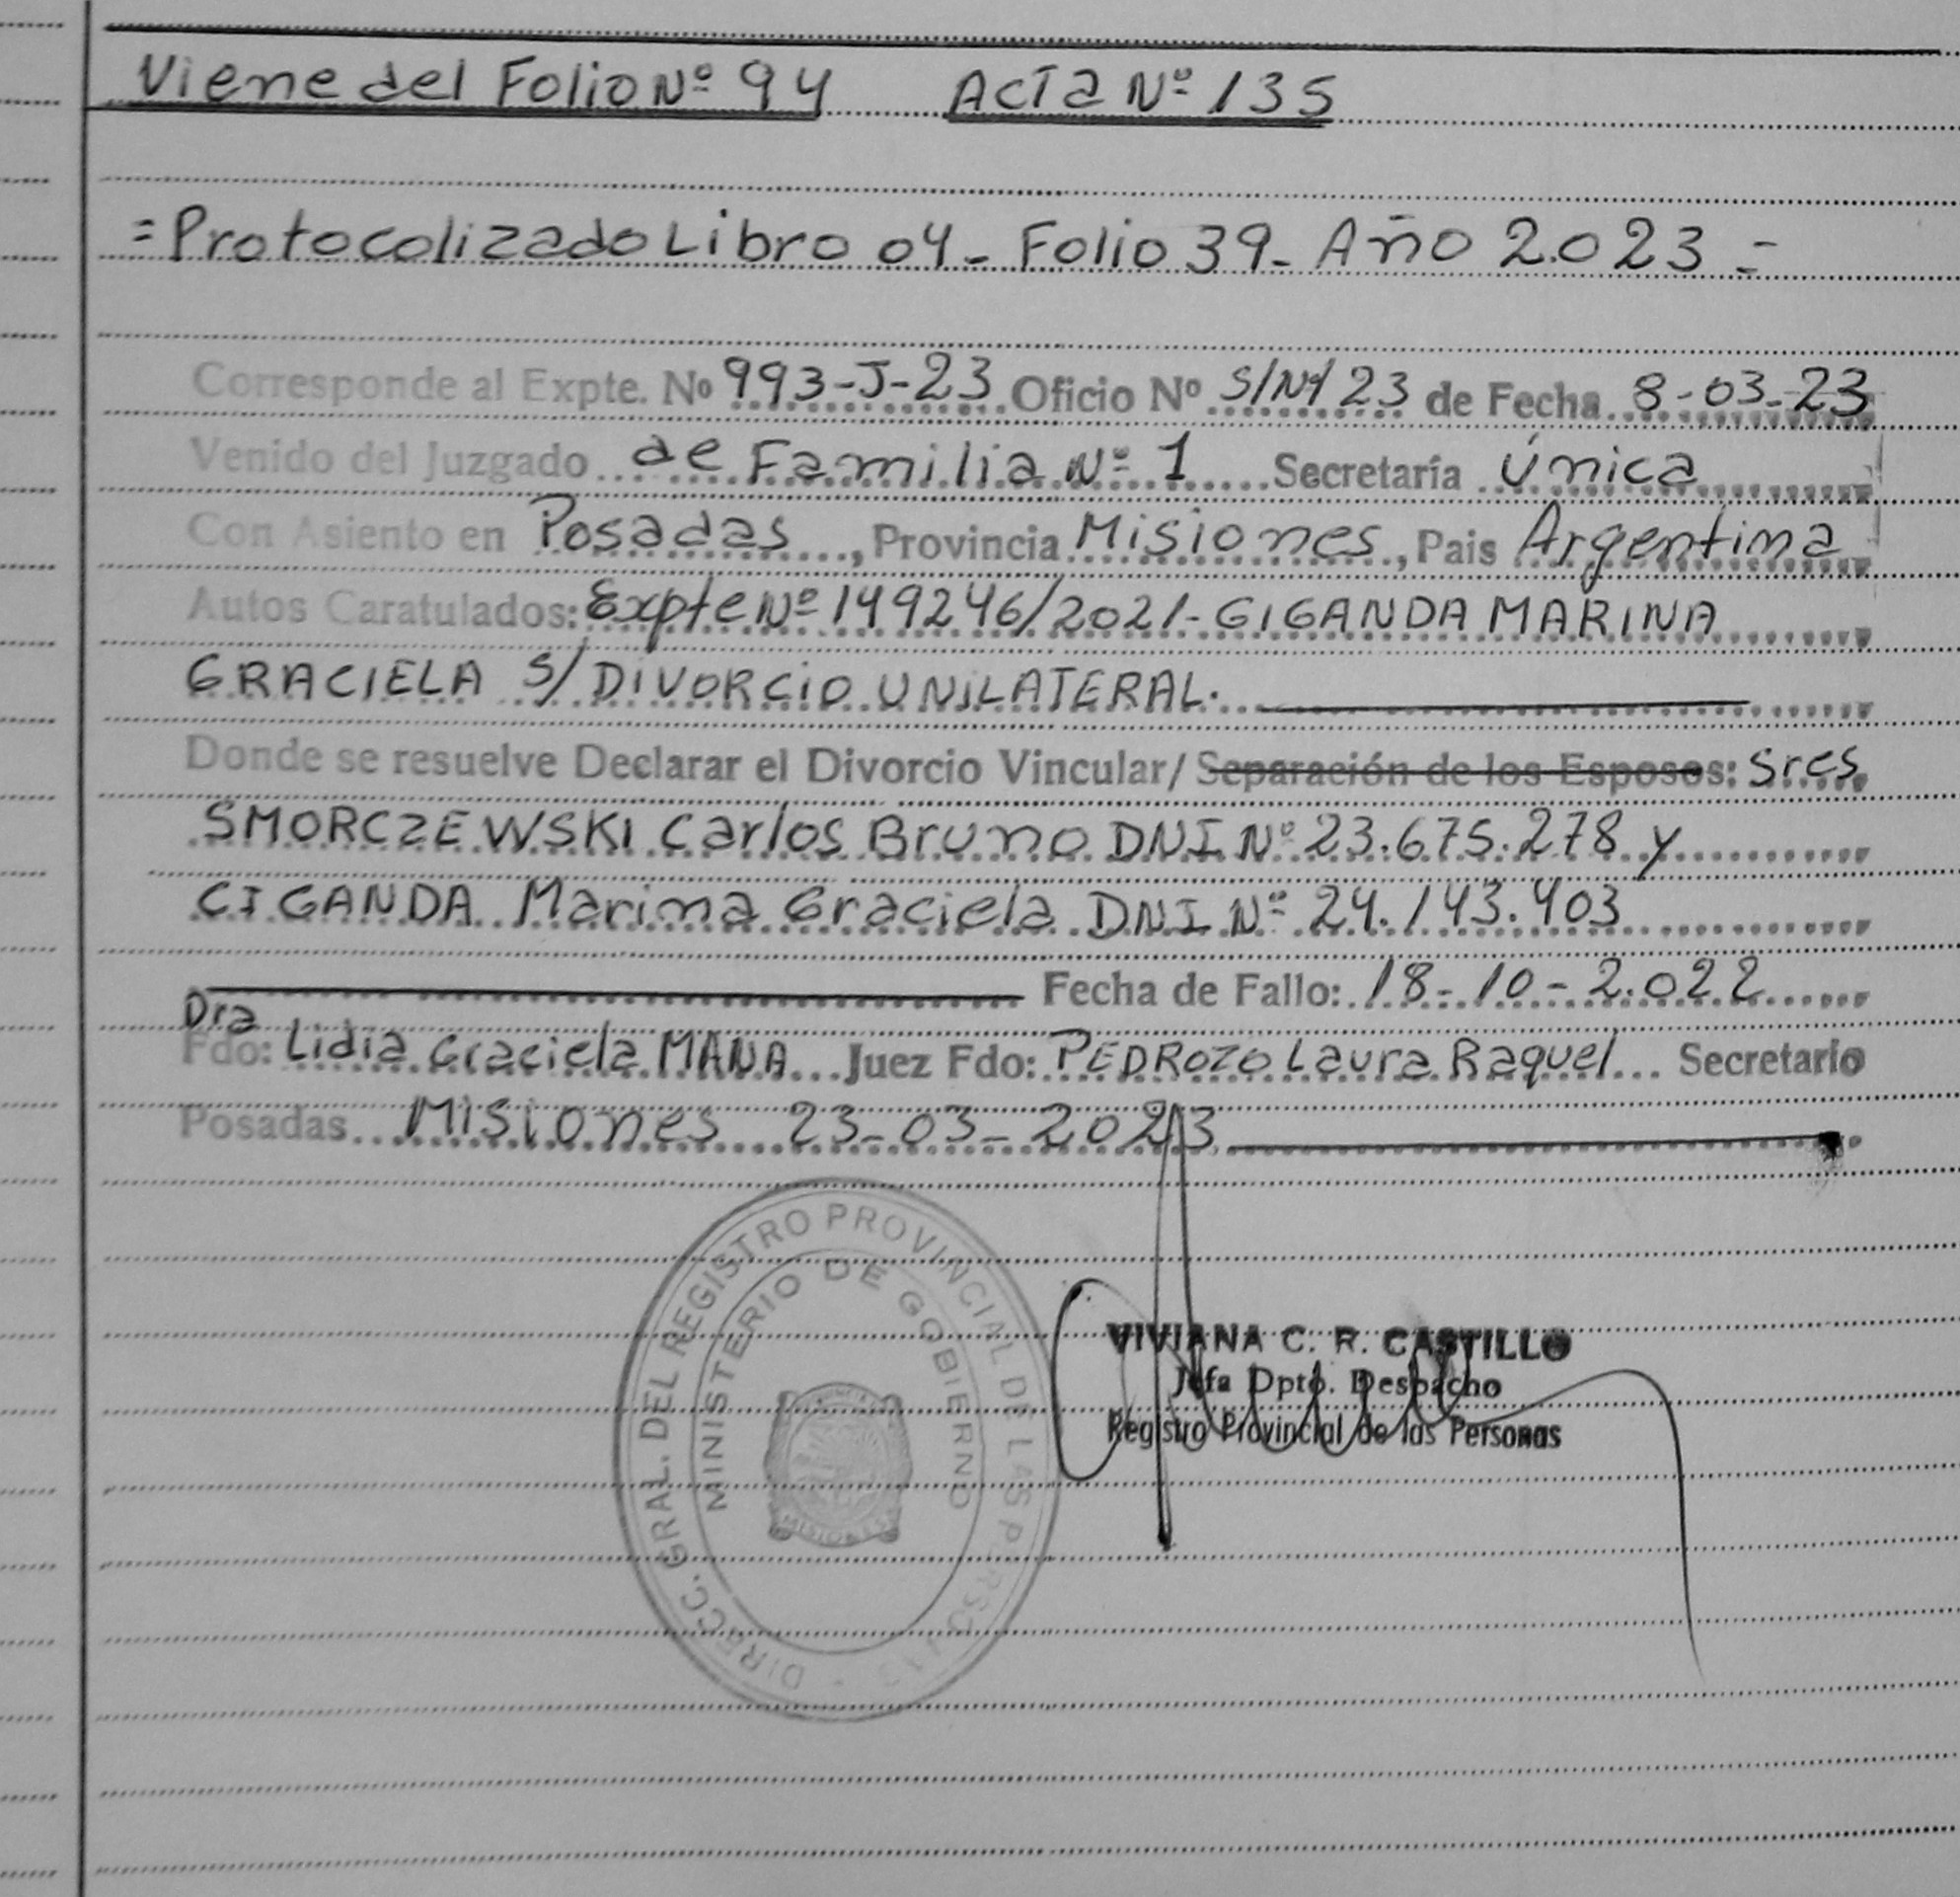 Viene del Folio Nº 94 Acta Nº 135
=Protocolizado Libro 04- Folio 39- Año 2.023 =
Corresponde al Expte. Nº 993-J-23 Oficio Nº S/Nº/23 de Fecha 8-03-23
Venido del Juzgado de Familia Nº 1 Secretaría Única
Con Asiento en Posadas, Provincia Misiones, Pais Argentina
Autos Caratulados: Expte Nº 149246/2021- GIGANDA MARINA
GRACIELA S/ DIVORCIO UNILATERAL.
Donde se resuelve Declarar el Divorcio Vincular/ Separación de los Esposos: Sres
SMORCZEWSKI Carlos Bruno DNI Nº 23.675.278 y
CIGANDA Marina Graciela DNI Nº 24.143.403
Fecha de Fallo: 18-10-2.022
Dra
Fdo: Lidia Graciela MANA Juez Fdo: PEDROZO Laura Raquel Secretario
Posadas Misiones 23-03-2023
DIRECC. GRAL. DEL REGISTRO PROVINCIAL DE LAS PERSONAS
MINISTERIO DE GOBIERNO
PROVINCIA
MISIONES
VIVIANA C. R. CASTILLO
Jefa Dpto. Despacho
Registro Provincial de las Personas